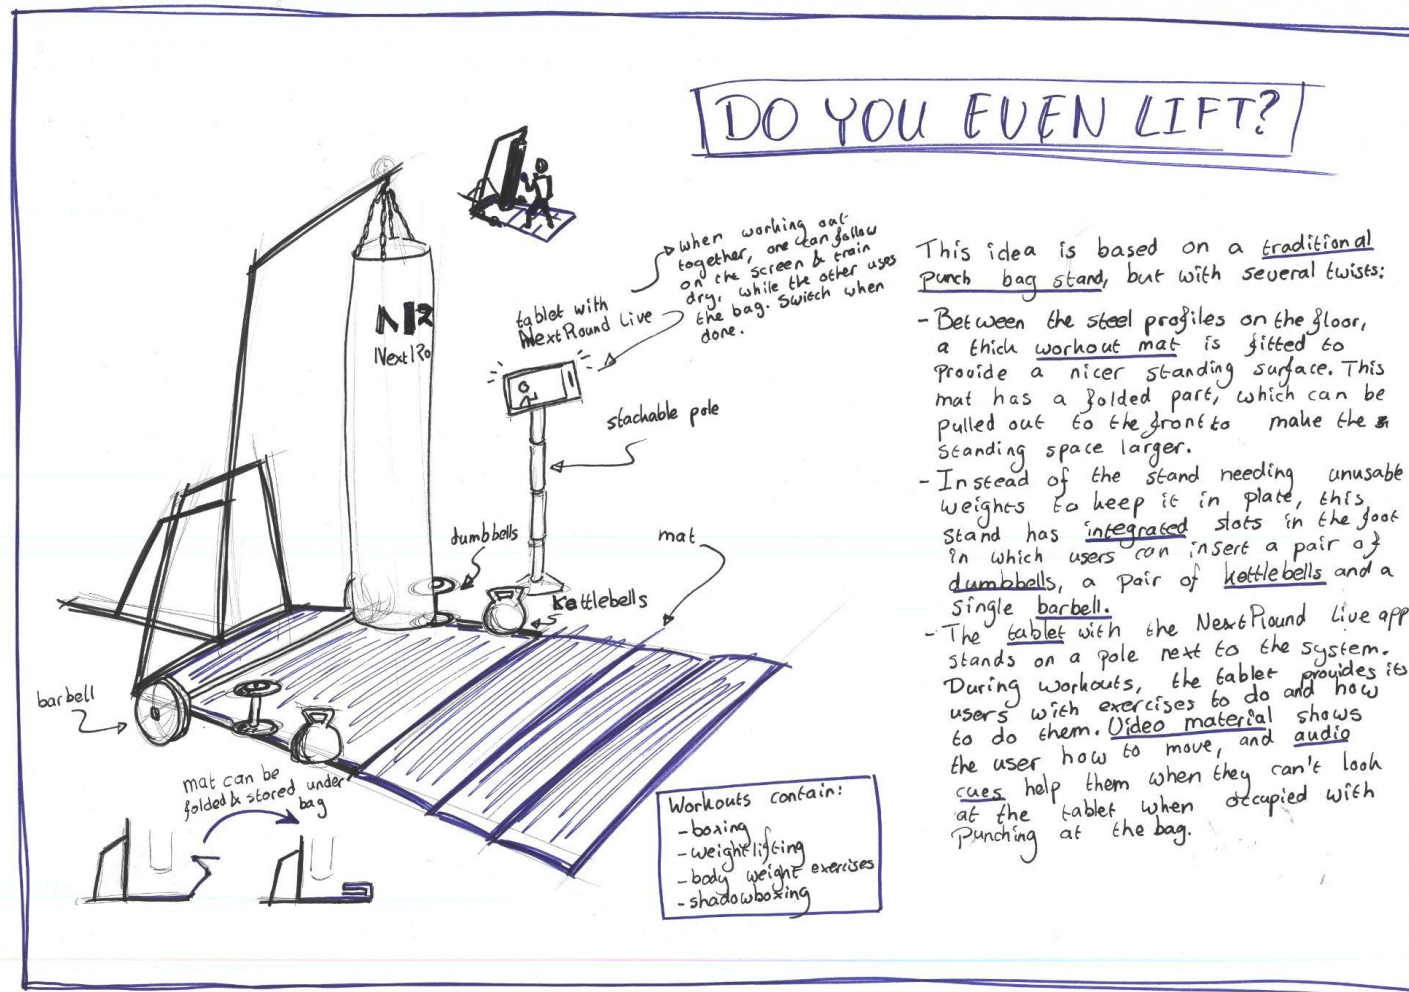 DO YOU EVEN LIFT?
when working out
together, one can follow
on the screen & train
dry, while the other uses
the bag. Switch when
done.
tablet with
NextRound Live
N R
Next Ro
stachable pole
dumbbells
mat
Kettlebells
barbell
mat can be
folded & stored under
bag
Workouts contain:
- boxing
- weightlifting
- body weight exercises
- shadowboxing
This idea is based on a traditional
punch bag stand, but with several twists:
- Between the steel profiles on the floor,
a thick workout mat is fitted to
provide a nicer standing surface. This
mat has a folded part, which can be
pulled out to the front to make the
standing space larger.
- Instead of the stand needing unusable
weights to keep it in plate, this
stand has integrated slots in the foot
in which users can insert a pair of
dumbbells, a pair of kettlebells and a
single barbell.
- The tablet with the NextRound Live app
stands on a pole next to the system.
During workouts, the tablet provides its
users with exercises to do and how
to do them. Video material shows
the user how to move, and audio
cues help them when they can't look
at the tablet when occupied with
punching at the bag.